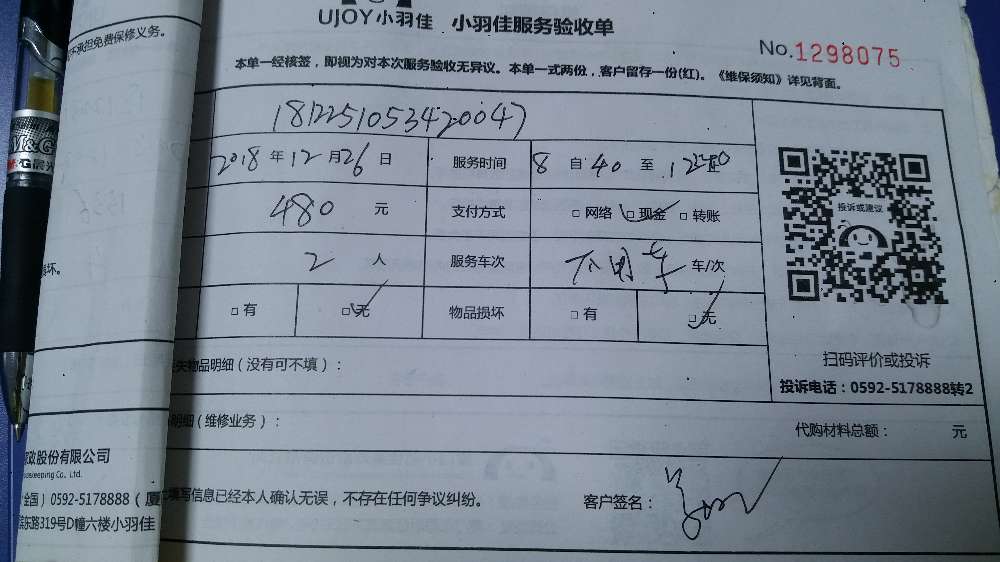 UJOY小羽佳 小羽佳服务验收单
不承担免费保修义务。
No.1298075
本单一经核签，即视为对本次服务验收无异议。本单一式两份，客户留存一份(红)。《维保须知》详见背面。
1812251053420047
2018 年 12 月 26 日 服务时间 8 自 40 至 12
480 元 支付方式 □ 网络 □ 现金 □ 转账
投诉或建议
2 人 服务车次 不用车 车/次
坏。
□ 有 □ 无 物品损坏 □ 有 □ 无
扫码评价或投诉
失物品明细（没有可不填）：
投诉电话：0592-5178888转2
明细（维修业务）：
代购材料总额： 元
政股份有限公司
keeping Co., Ltd.
全国）0592-5178888（厦
填写信息已经本人确认无误，不存在任何争议纠纷。 客户签名：
滨东路319号D幢六楼小羽佳
M&G